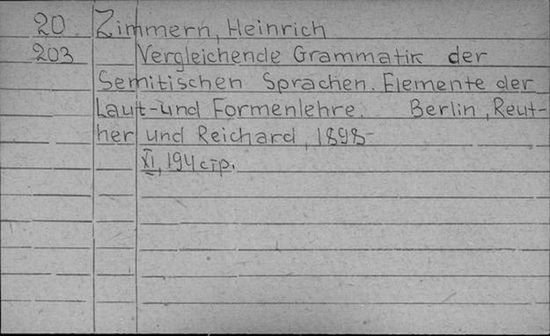 20 Zimmern, Heinrich
203 Vergleichende Grammatik der
Semitischen Sprachen. Elemente der
Laut- und Formenlehre. Berlin, Reut-
her und Reichard, 1898-
XI, 194 стр.